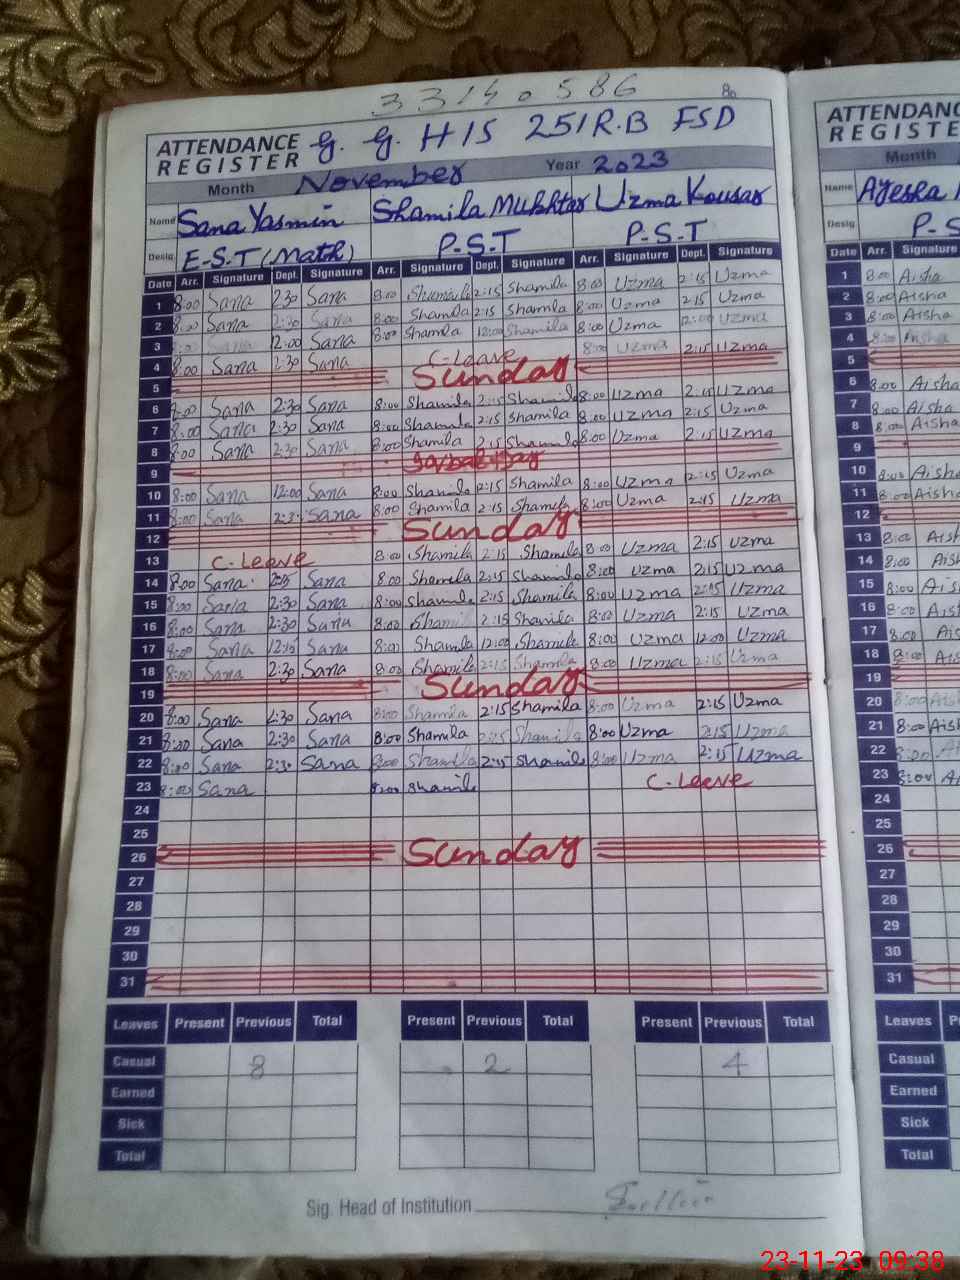 33140586
80
ATTENDANCE REGISTER G. G. H/S 251R.B FSD
Month November Year 2023
Name Sana Yasmin Shamila Mukhtar Uzma Kousar
Desig. E-S.T (Math) P-S.T P-S.T
Date Arr. Signature Dept. Signature Arr. Signature Dept. Signature Arr. Signature Dept. Signature
1 8:00 Sana 2:30 Sana 8:00 Shamila 2:15 Shamila 8:00 Uzma 2:15 Uzma
2 8:00 Sana 2:30 Sana 8:00 Shamila 2:15 Shamila 8:00 Uzma 2:15 Uzma
3 8:00 Sana 12:00 Sana 8:00 Shamila 12:00 Shamila 8:00 Uzma 12:00 Uzma
4 8:00 Sana 2:30 Sana C-Leave 8:00 Uzma 2:15 Uzma
5 Sunday
6 8:00 Sana 2:30 Sana 8:00 Shamila 2:15 Shamila 8:00 Uzma 2:15 Uzma
7 8:00 Sana 2:30 Sana 8:00 Shamila 2:15 Shamila 8:00 Uzma 2:15 Uzma
8 8:00 Sana 2:30 Sana 8:00 Shamila 2:15 Shamila 8:00 Uzma 2:15 Uzma
9 Day
10 8:00 Sana 12:00 Sana 8:00 Shamila 2:15 Shamila 8:00 Uzma 2:15 Uzma
11 8:00 Sana 2:30 Sana 8:00 Shamila 2:15 Shamila 8:00 Uzma 2:15 Uzma
12 Sunday
13 C. Leave 8:00 Shamila 2:15 Shamila 8:00 Uzma 2:15 Uzma
14 8:00 Sana Sana 8:00 Shamila 2:15 Shamila 8:00 Uzma 2:15 Uzma
15 8:00 Sana 2:30 Sana 8:00 Shamila 2:15 Shamila 8:00 Uzma 2:15 Uzma
16 8:00 Sana 2:30 Sana 8:00 Shamila 2:15 Shamila 8:00 Uzma 2:15 Uzma
17 8:00 Sana Sana 8:00 Shamila 12:00 Shamila 8:00 Uzma 12:00 Uzma
18 8:00 Sana 2:30 Sana 8:00 Shamila 2:15 Shamila 8:00 Uzma 2:15 Uzma
19 Sunday
20 8:00 Sana 2:30 Sana 8:00 Shamila 2:15 Shamila 8:00 Uzma 2:15 Uzma
21 8:00 Sana 2:30 Sana 8:00 Shamila 2:15 Shamila 8:00 Uzma 2:15 Uzma
22 8:00 Sana 2:30 Sana 8:00 Shamila 2:15 Shamila 8:00 Uzma 2:15 Uzma
23 8:00 Sana 8:00 Shamila C. Leave
24
25
26 Sunday
27
28
29
30
31
Leaves Present Previous Total Present Previous Total Present Previous Total
Casual 8 2 4
Earned
Sick
Total
Sig. Head of Institution
ATTENDANC
REGISTE
Month
Name Ayesha
Desig. P-S
Date Arr. Signature
1 8:00 Aisha
2 8:00 Aisha
3 8:00 Aisha
4 8:00 Aisha
5
6 8:00 Aisha
7 8:00 Aisha
8 8:00 Aisha
9
10 8:00 Aisha
11 8:00 Aisha
12
13 8:00 Aish
14 8:00 Aish
15 8:00 Ais
16 8:00 Aish
17 8:00 Ais
18 8:00 Ais
19
20 8:00 Ais
21 8:00 Ais
22 8:00 A
23 8:00 A
24
25
26
27
28
29
30
31
Leaves P
Casual
Earned
Sick
Total
23-11-23 09:38